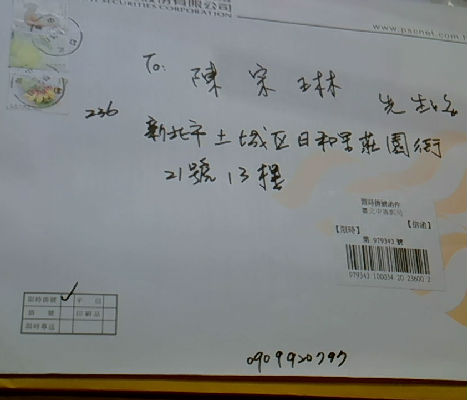 份有限公司
SECURITIES CORPORATION
www.pscnet.com.t
To: 陳宗琳 先生
236
新北市土城区日和街莊園街
21號13樓
限時掛號函件
【限時】 【信函】
第 979343 號
979343 100034 20 23600 2
限時掛號 ✓ 平信
掛號 印刷品
限時專送
0909920797